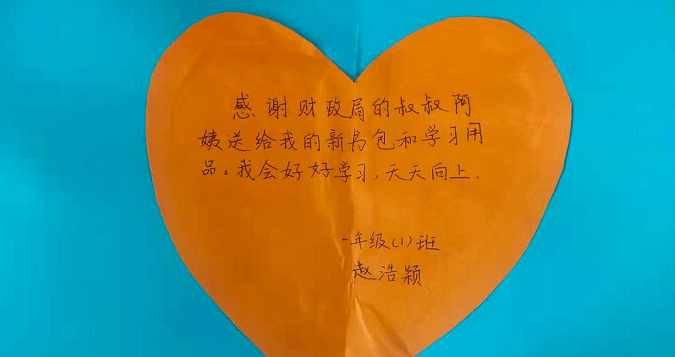 感谢财政局的叔叔阿
姨送给我的新书包和学习用
品。我会好好学习，天天向上.
一年级(1)班
赵浩颖